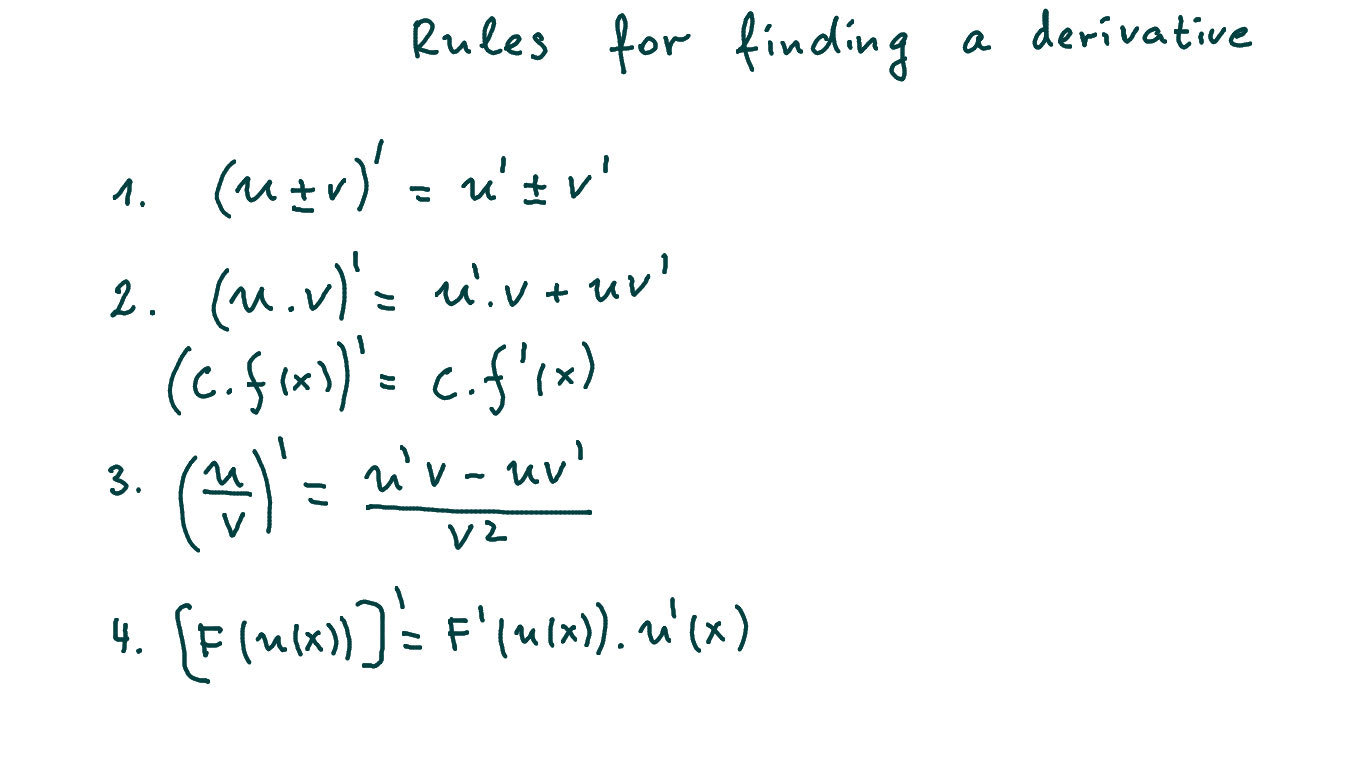 Rules for finding a derivative
1. (u ± v)' = u' ± v'
2. (u . v)' = u' . v + uv'
(c . f(x))' = c . f'(x)
3. (u/v)' = (u'v - uv')/v²
4. [F(u(x))]' = F'(u(x)) . u'(x)